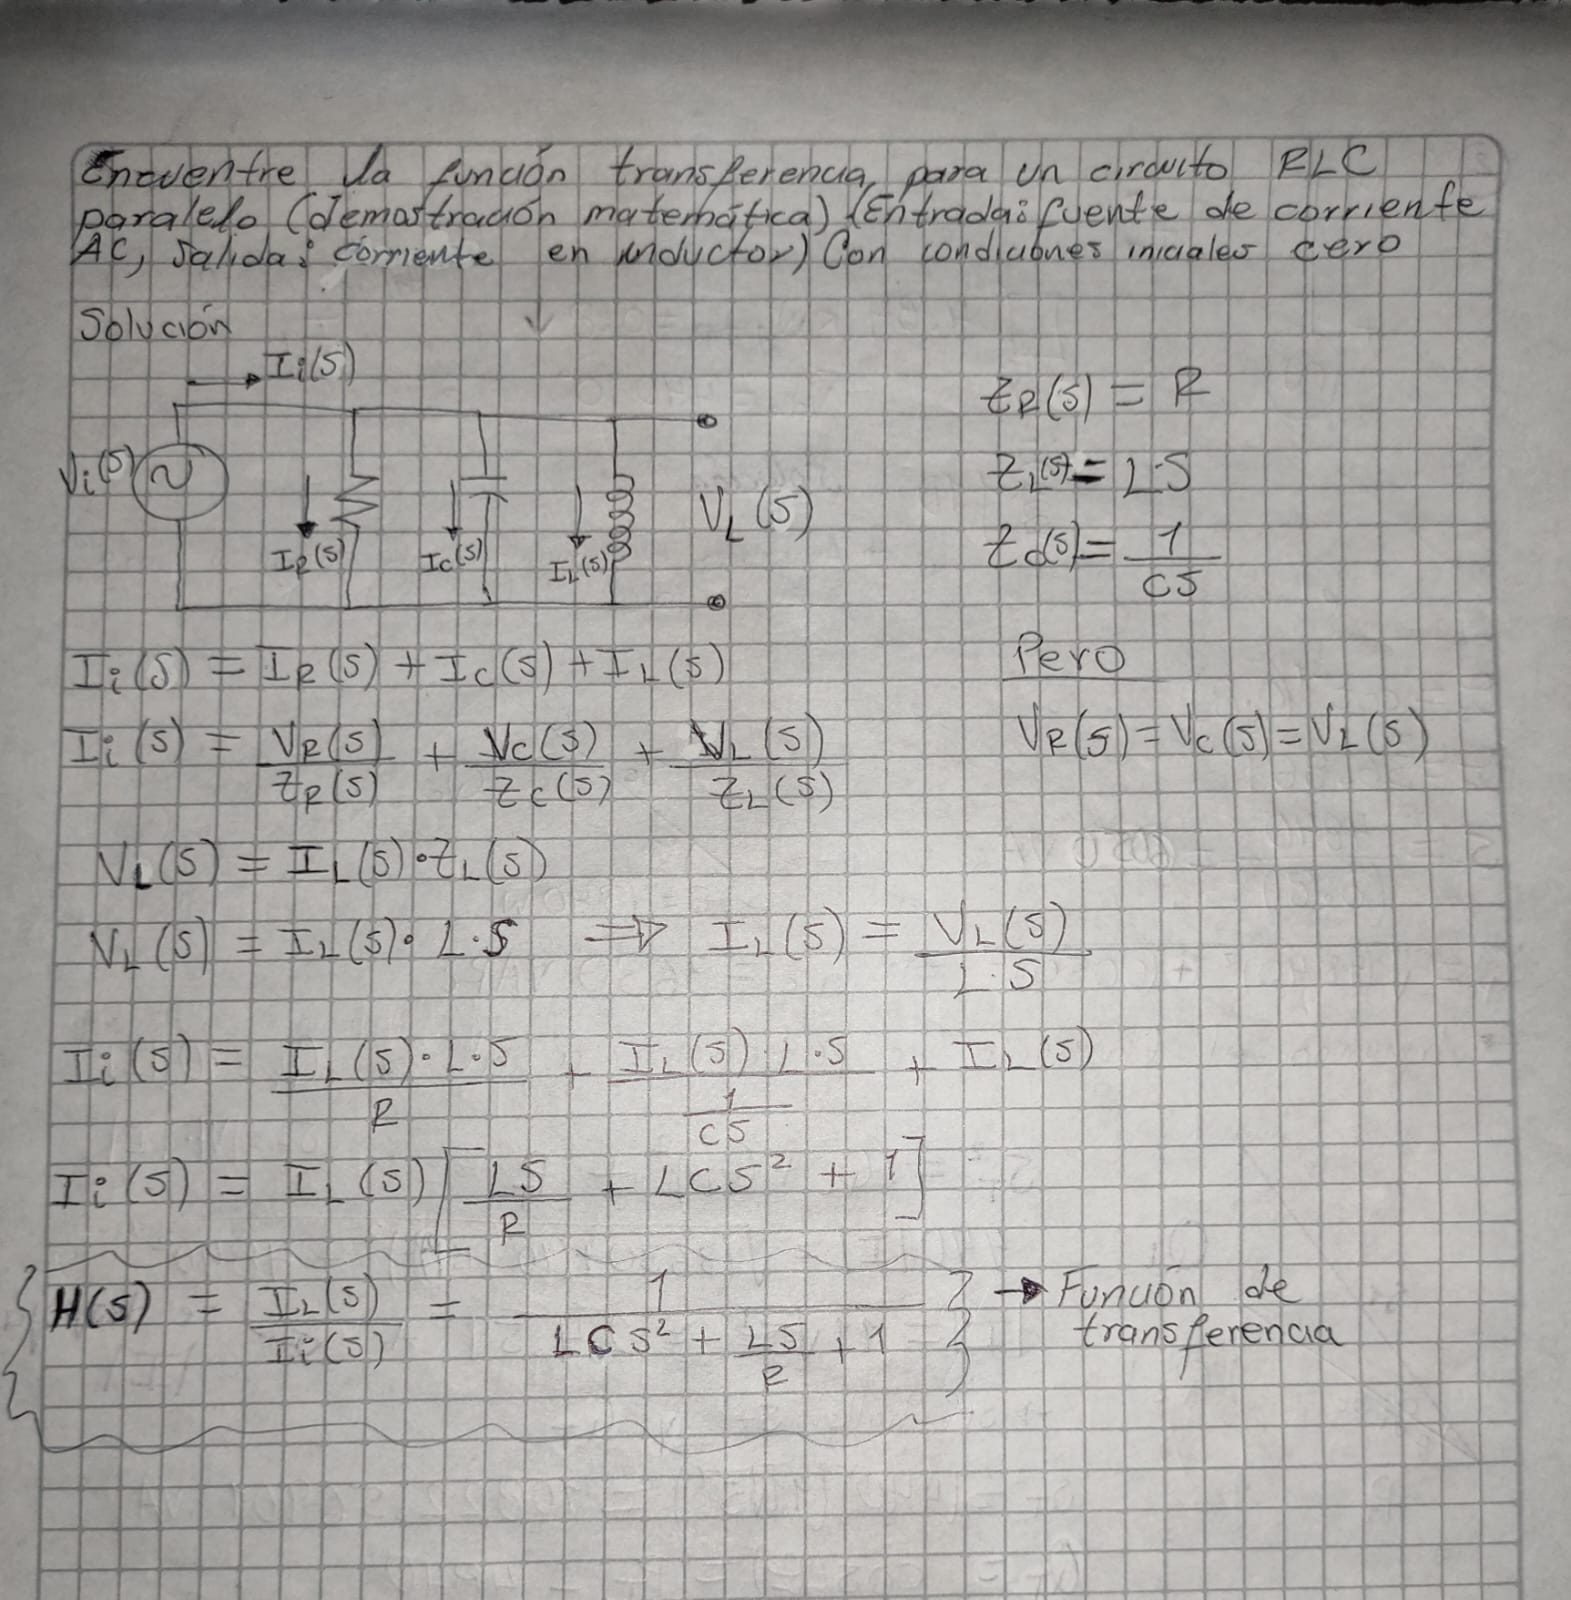 Encuentre la función transferencia, para un circuito RLC
paralelo (demostración matemática) (Entrada: fuente de corriente
AC, Salida: corriente en inductor) Con condiciones iniciales cero
Solución
Ii(S)
Vi(S)
IR(S)
IC(S)
IL(S)
VL(S)
ZR(S) = R
ZL(S) = L·S
ZC(S) = 1/CS
Ii(S) = IR(S) + IC(S) + IL(S)
Pero
Ii(S) = VR(S)/ZR(S) + VC(S)/ZC(S) + VL(S)/ZL(S)
VR(S) = VC(S) = VL(S)
VL(S) = IL(S)·ZL(S)
VL(S) = IL(S)·L·S ⇒ IL(S) = VL(S)/L·S
Ii(S) = IL(S)·L·S/R + IL(S)·L·S/(1/CS) + IL(S)
Ii(S) = IL(S)[LS/R + LCS² + 1]
H(S) = IL(S)/Ii(S) = 1/(LCS² + LS/R + 1) → Función de
transferencia